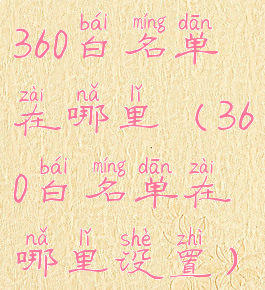 bái míng dān
360白名单
zài nǎ lǐ
在哪里（36
bái míng dān zài
0白名单在
nǎ lǐ shè zhì
哪里设置）